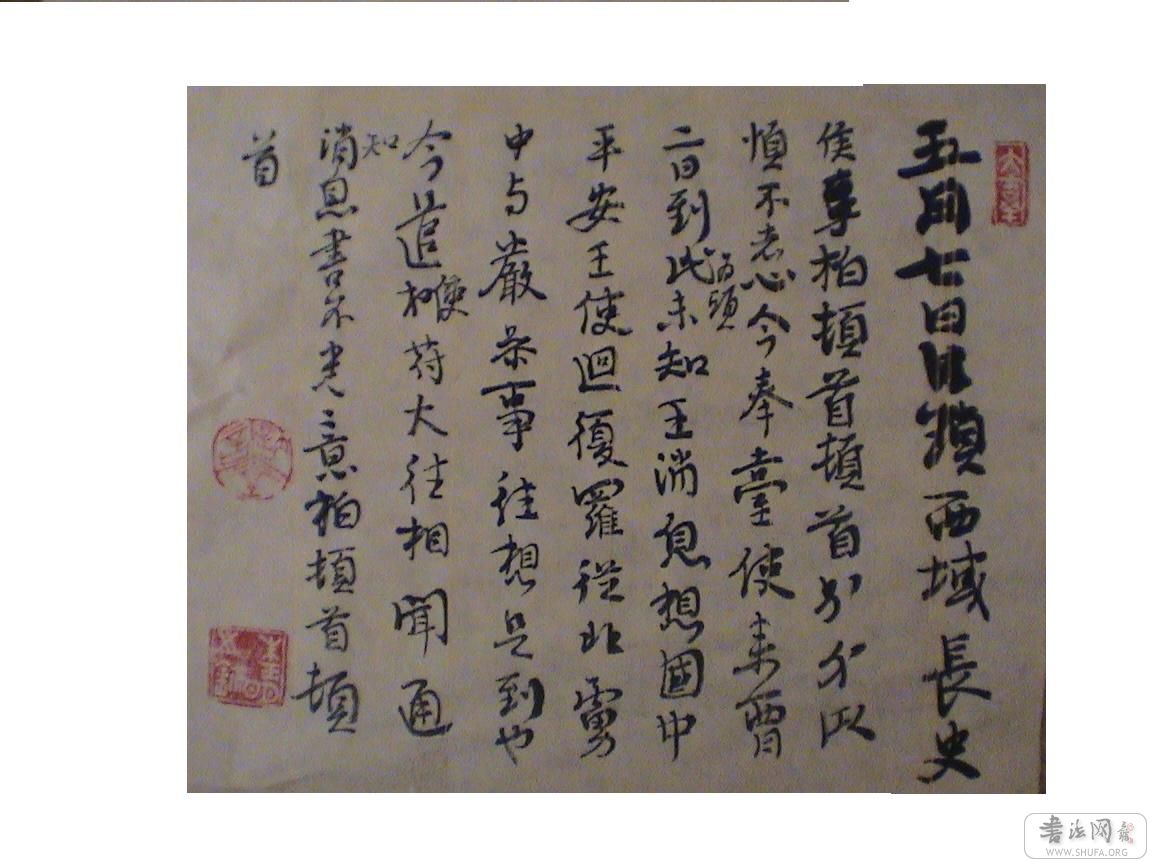 五月七日西域長史
侯李柏頓首頓首別
不去心今奉臺使来西月
海頭
二日到此未知王消息想國中
平安王使迴復羅從北虜
中与嚴参事往想是到也
今遣使苻大往相聞通
知
消息書不意柏頓首頓
首
書法网
WWW.SHUFA.ORG